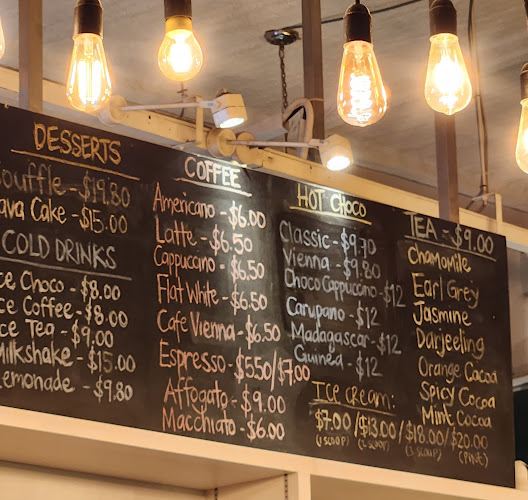 DESSERTS
ouffle - $19.80
ava Cake - $15.00
COLD DRINKS
ce Choco - $8.00
ce Coffee - $8.00
ce Tea - $9.00
Milkshake - $15.00
emonade - $9.80
COFFEE
Americano - $6.00
Latte - $6.50
Cappuccino - $6.50
Flat White - $6.50
Cafe Vienna - $6.50
Espresso - $550/$7.00
Affogato - $9.00
Macchiato - $6.00
HOT CHOCO
Classic - $9.70
Vienna - $9.80
Choco Cappuccino - $12
Carupano - $12
Madagascar - $12
Guinea - $12
ICE CREAM:
$7.00/$13.00/$18.00/$20.00
(1 SCOOP) (2 SCOOP) (3 SCOOP) (PINT)
TEA - $9.00
Chamomile
Earl Grey
Jasmine
Darjeeling
Orange Cocoa
Spicy Cocoa
Mint Cocoa